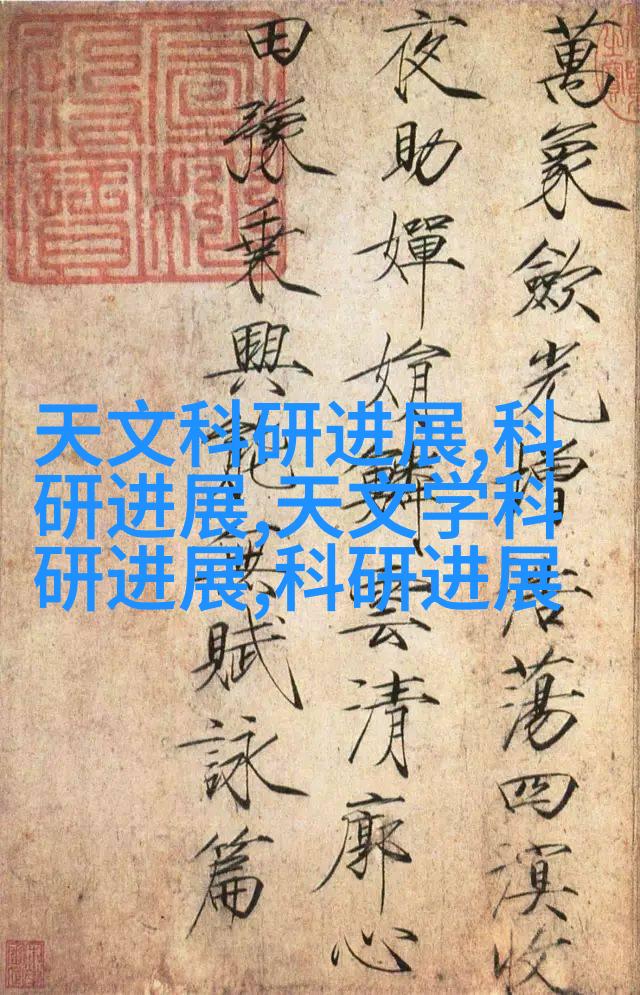 萬象歛光增浩蕩四溟收
夜助嬋娟鱗雲清廓心
田豫乗興能無賦詠篇
天文科研进展,科
研进展,天文学科
研进展,科研进展